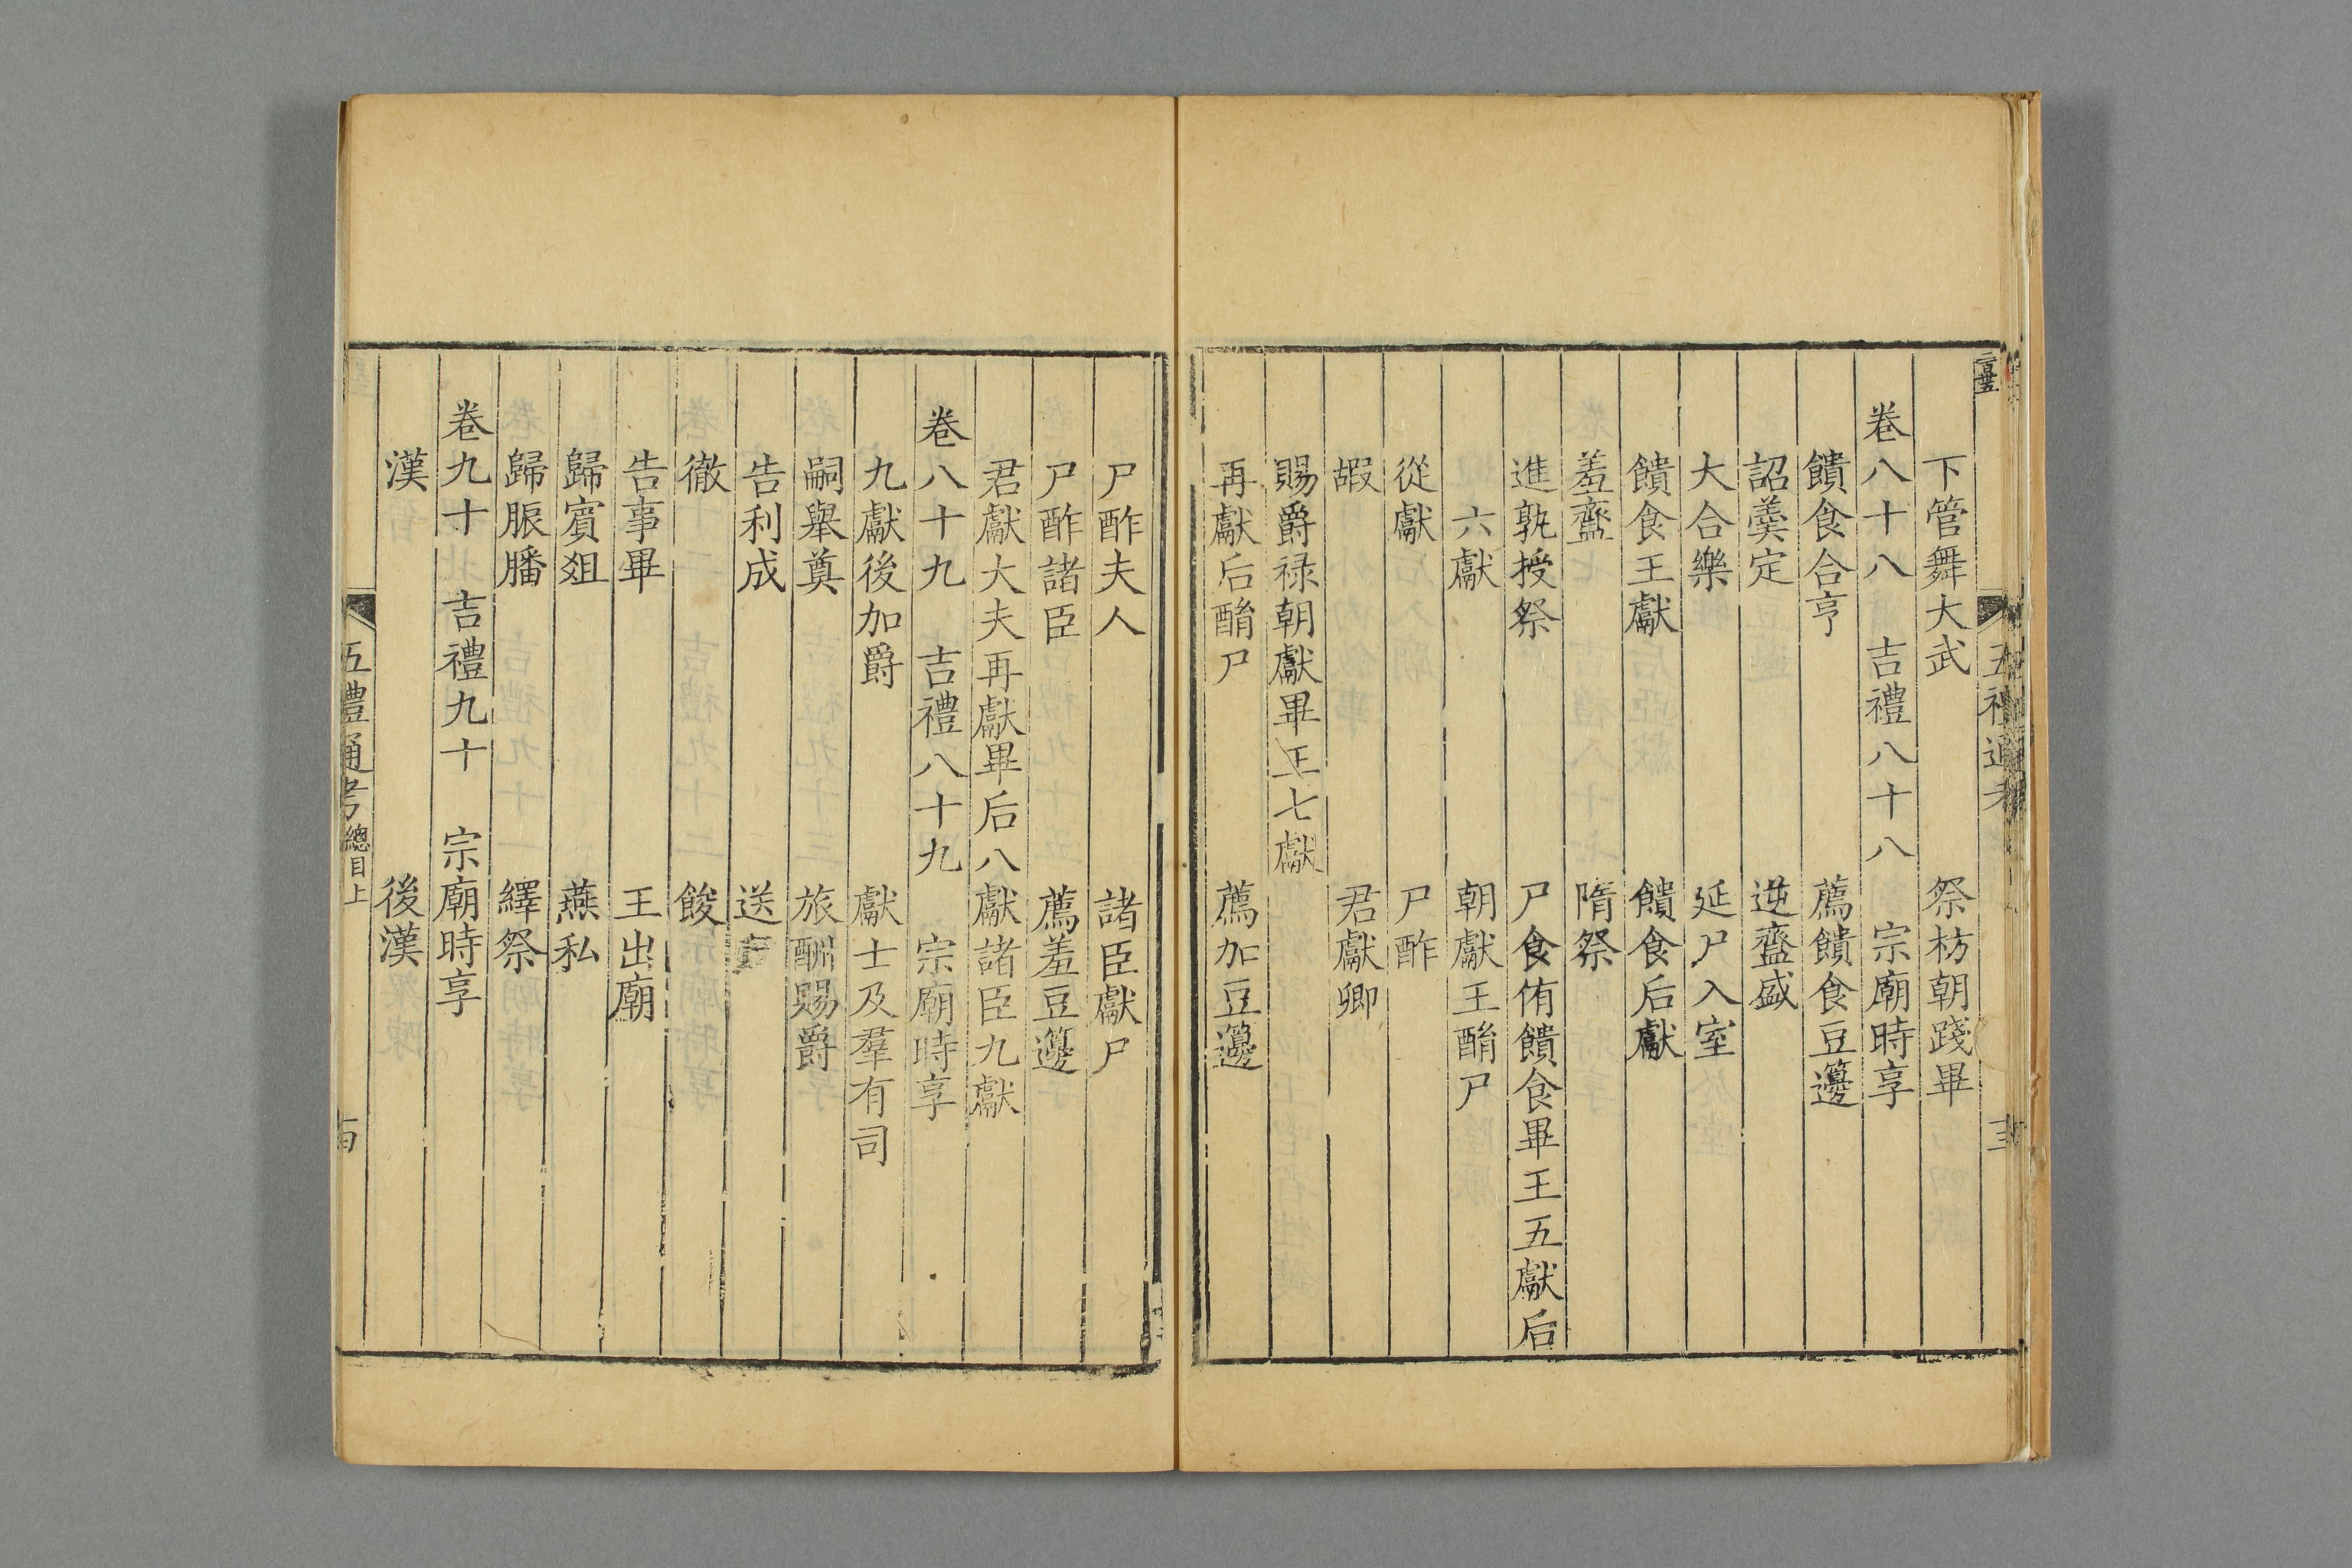 五禮通考
下管舞大武　祭枋朝踐畢
卷八十八　吉禮八十八　宗廟時享
饋食合亨　薦饋食豆籩
詔羹定　逆齍盛
大合樂　延尸入室
饋食王獻　饋食后獻
羞齍　隋祭
進孰授祭　尸食侑饋食畢王五獻后
六獻　朝獻王酳尸
從獻　尸酢
嘏　君獻卿
賜爵祿朝獻畢王七獻
再獻后酳尸　薦加豆籩
尸酢夫人　諸臣獻尸
尸酢諸臣　薦羞豆籩
君獻大夫再獻畢后八獻諸臣九獻
卷八十九　吉禮八十九　宗廟時享
九獻後加爵　獻士及羣有司
嗣舉奠　旅酬賜爵
告利成　送
徹　餕
告事畢　王出廟
歸賓俎　燕私
歸脤膰　繹祭
卷九十　吉禮九十　宗廟時享
漢　後漢
五禮通考　總目上